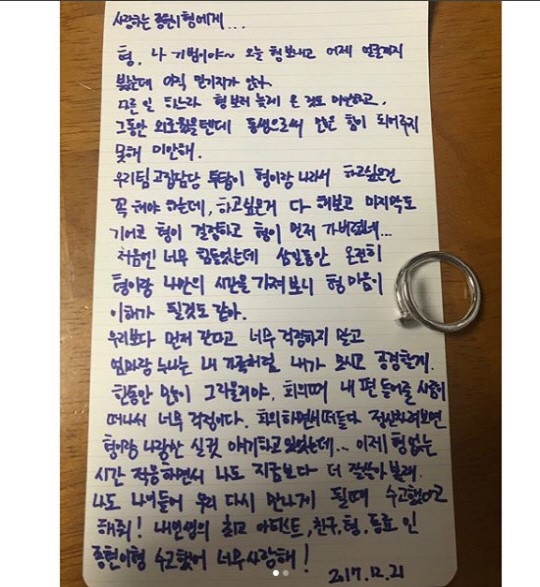 사랑하는 종현이형에게...
형. 나 기범이야~ 오늘 형 보내고 어제 얼굴까지
봤는데 아직 믿기지가 않아.
다른 일 하느라 형 보러 늦게 온 것도 미안하고,
그동안 외로웠을텐데 동생으로써 더 많은 힘이 되어주지
못해 미안해.
우리팀 고집담당 투탑이 형이랑 나라서 하고싶은건
꼭 해야 하는데, 하고싶은거 다 해보고 마지막도
기어코 형이 결정하고 형이 먼저 가버렸네...
처음엔 너무 힘들었는데 삼일동안 온전히
형이랑 나만의 시간을 가져 보니 형 마음이
이해가 될것도 같아.
우리보다 먼저 간다고 너무 걱정하지 말고
엄마랑 누나는 내 가족처럼 내가 모시고 공경할게.
한동안 많이 그리울거야. 회의때 내 편 들어줄 사람이
떠나서 너무 걱정이다. 회의하면서 떠들다 정신차려보면
형이랑 나랑만 실컷 얘기하고 있었는데... 이제 형 없는
시간 적응하면서 나도 지금보다 더 잘 살아 볼래.
나도 나이들어 우리 다시 만나게 될때 수고했다고
해줘! 내 인생의 최고 아티스트, 친구, 형, 동료 인
종현이형 수고했어 너무 사랑해!
2017.12.21